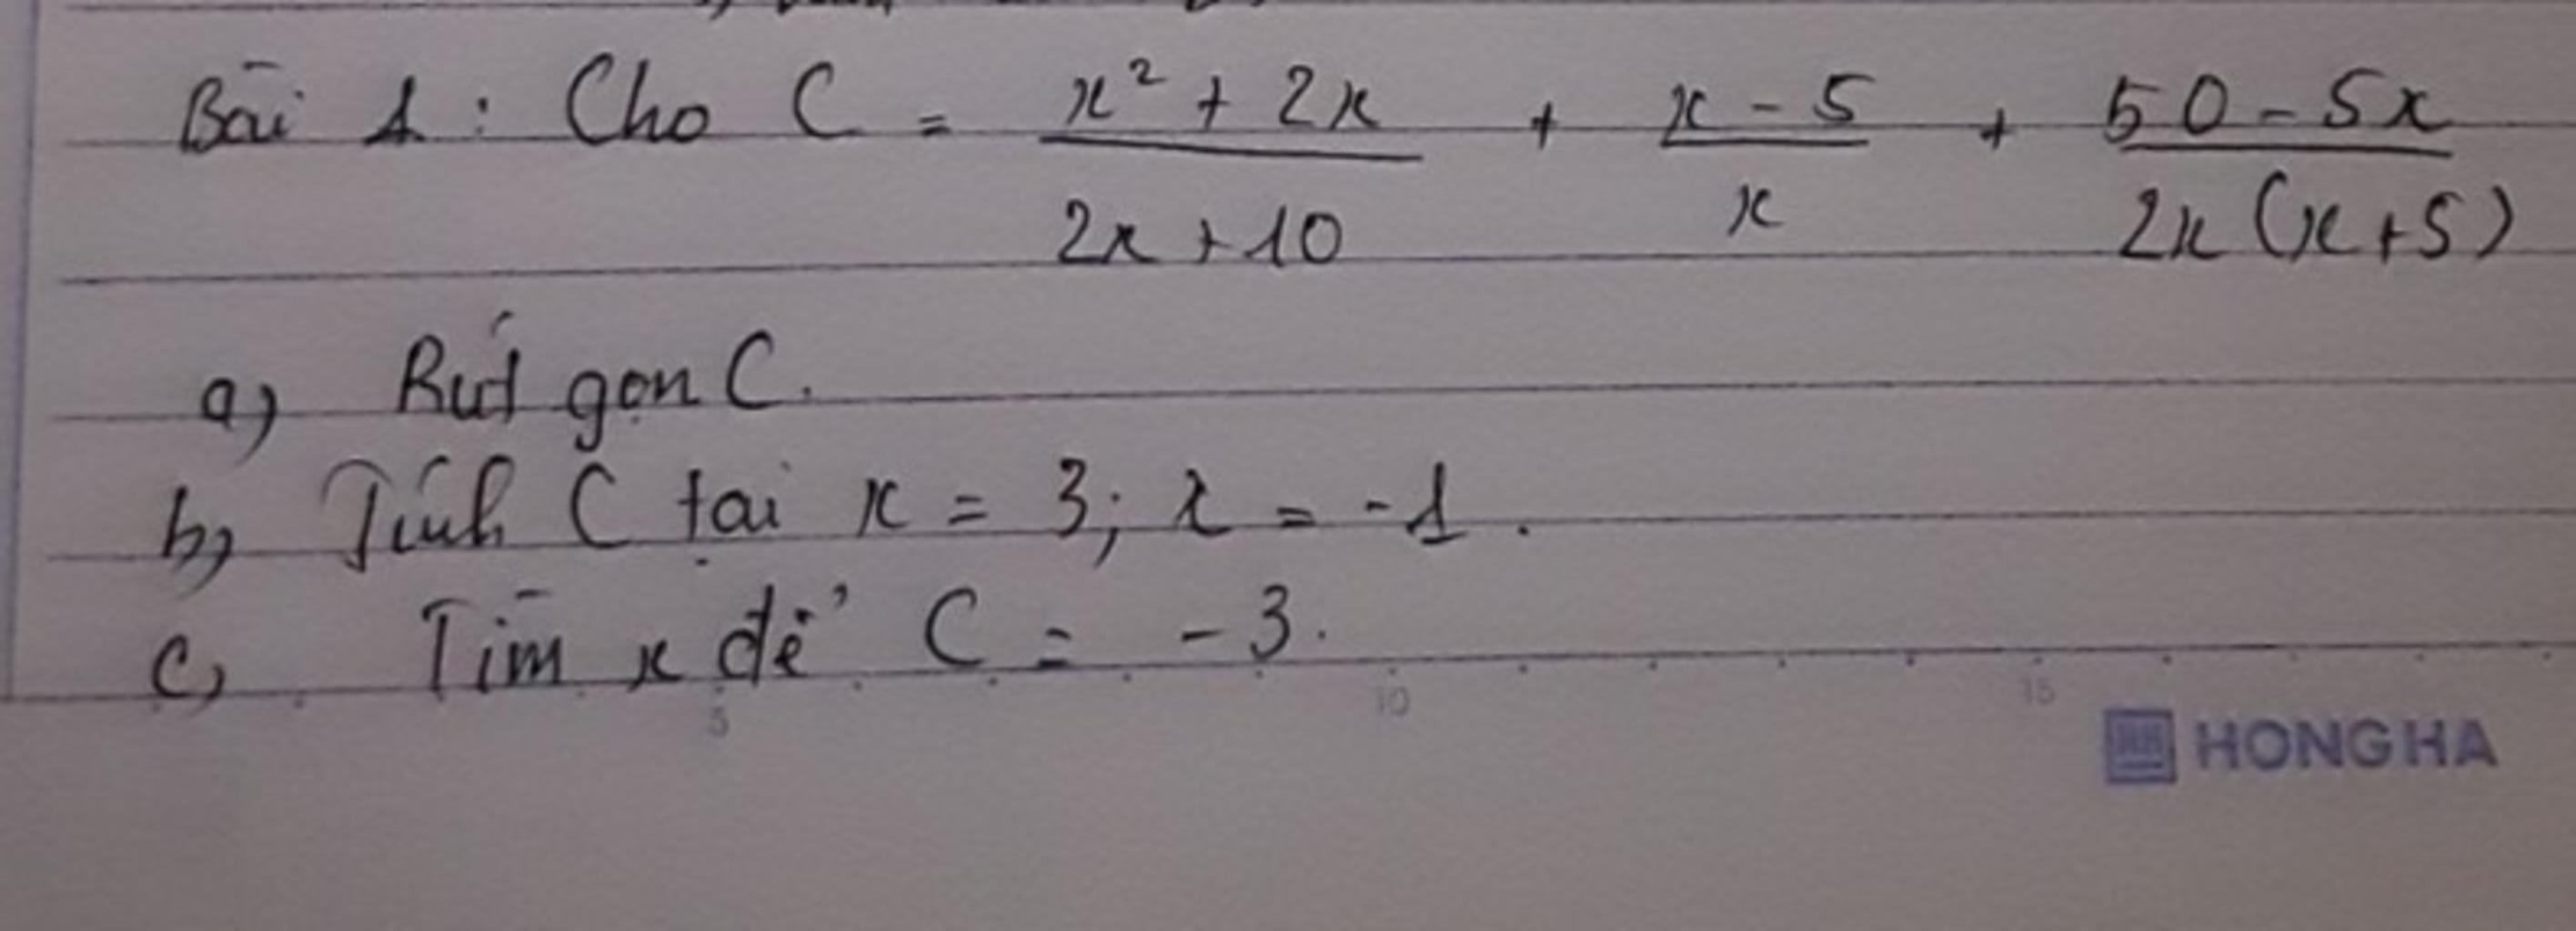 Bài 1 : Cho C = (x² + 2x)/(2x + 10) + (x - 5)/x + (50 - 5x)/(2x(x+5))
a) Rút gọn C.
b) Tính C tại x = 3; x = -1.
c) Tìm x để C = -3.
5 10 15
HONG HA